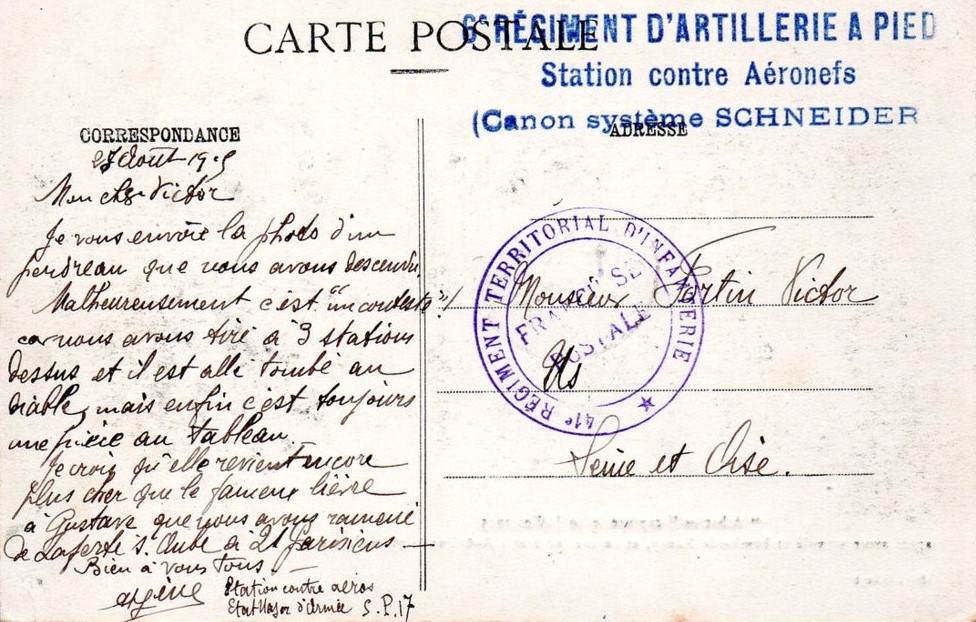 CARTE POSTALE
6e RÉGIMENT D'ARTILLERIE A PIED
Station contre Aéronefs
(Canon système SCHNEIDER
CORRESPONDANCE
ADRESSE
27 Août 1915
Mon cher Victor
Je vous envoie la photo d'un
perdreau que nous avons descendu
Malheureusement c'est "incontesté"!
car nous avons tiré à 3 stations
dessus et il est allé tombé au
diable, mais enfin c'est toujours
une pièce au tableau.
Je crois qu'elle revient encore
plus cher que le fameux lièvre
à Gustave que nous avons ramené
de Laferté s. Aube à 21 Parisiens
Bien à vous tous.
Station contre aéros
Etat Major d'Armée S.P.17
41e RÉGIMENT TERRITORIAL D'INFANTERIE
FRANCHISE
POSTALE
Monsieur Fortin Victor
Us
Seine et Oise.